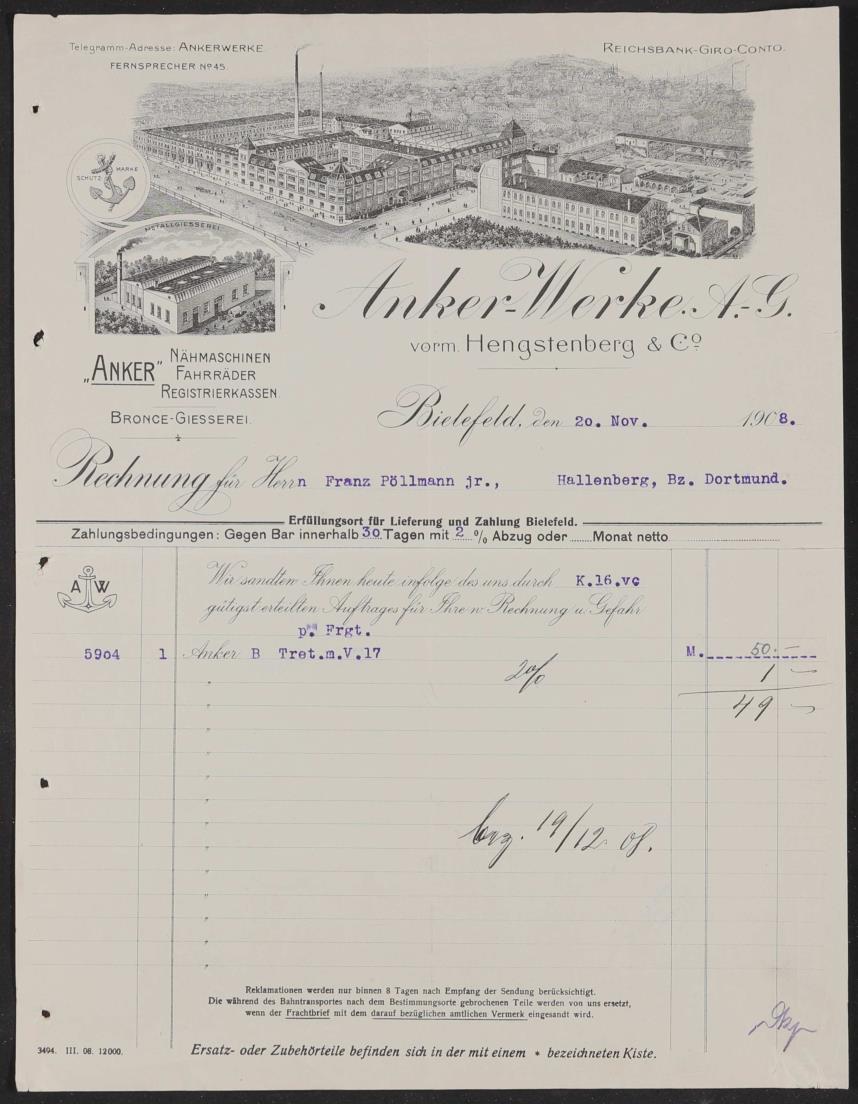 Telegramm-Adresse: ANKERWERKE.
FERNSPRECHER No 45.
REICHSBANK-GIRO-CONTO.
SCHUTZ MARKE
METALLGIESSEREI
Anker-Werke. A.-G.
vorm. Hengstenberg & Co
„ANKER” NÄHMASCHINEN
FAHRRÄDER
REGISTRIERKASSEN.
BRONCE-GIESSEREI.
Bielefeld, den 2o. Nov. 1908.
Rechnung für Herrn Franz Pöllmann jr., Hallenberg, Bz. Dortmund.
Erfüllungsort für Lieferung und Zahlung Bielefeld.
Zahlungsbedingungen: Gegen Bar innerhalb 3o Tagen mit 2 % Abzug oder ...... Monat netto
A W
Wir sandten Ihnen heute infolge des uns durch K.16.vc
gütigst erteilten Auftrages für Ihre n Rechnung u. Gefahr
p. Frgt.
59o4 1 Anker B Tret.m.V.17 M. 50.—
2% 1 —
49 —
bez. 19/12. 08.
Reklamationen werden nur binnen 8 Tagen nach Empfang der Sendung berücksichtigt.
Die während des Bahntransportes nach dem Bestimmungsorte gebrochenen Teile werden von uns ersetzt,
wenn der Frachtbrief mit dem darauf bezüglichen amtlichen Vermerk eingesandt wird.
3494. III. 08. 12000.
Ersatz- oder Zubehörteile befinden sich in der mit einem * bezeichneten Kiste.